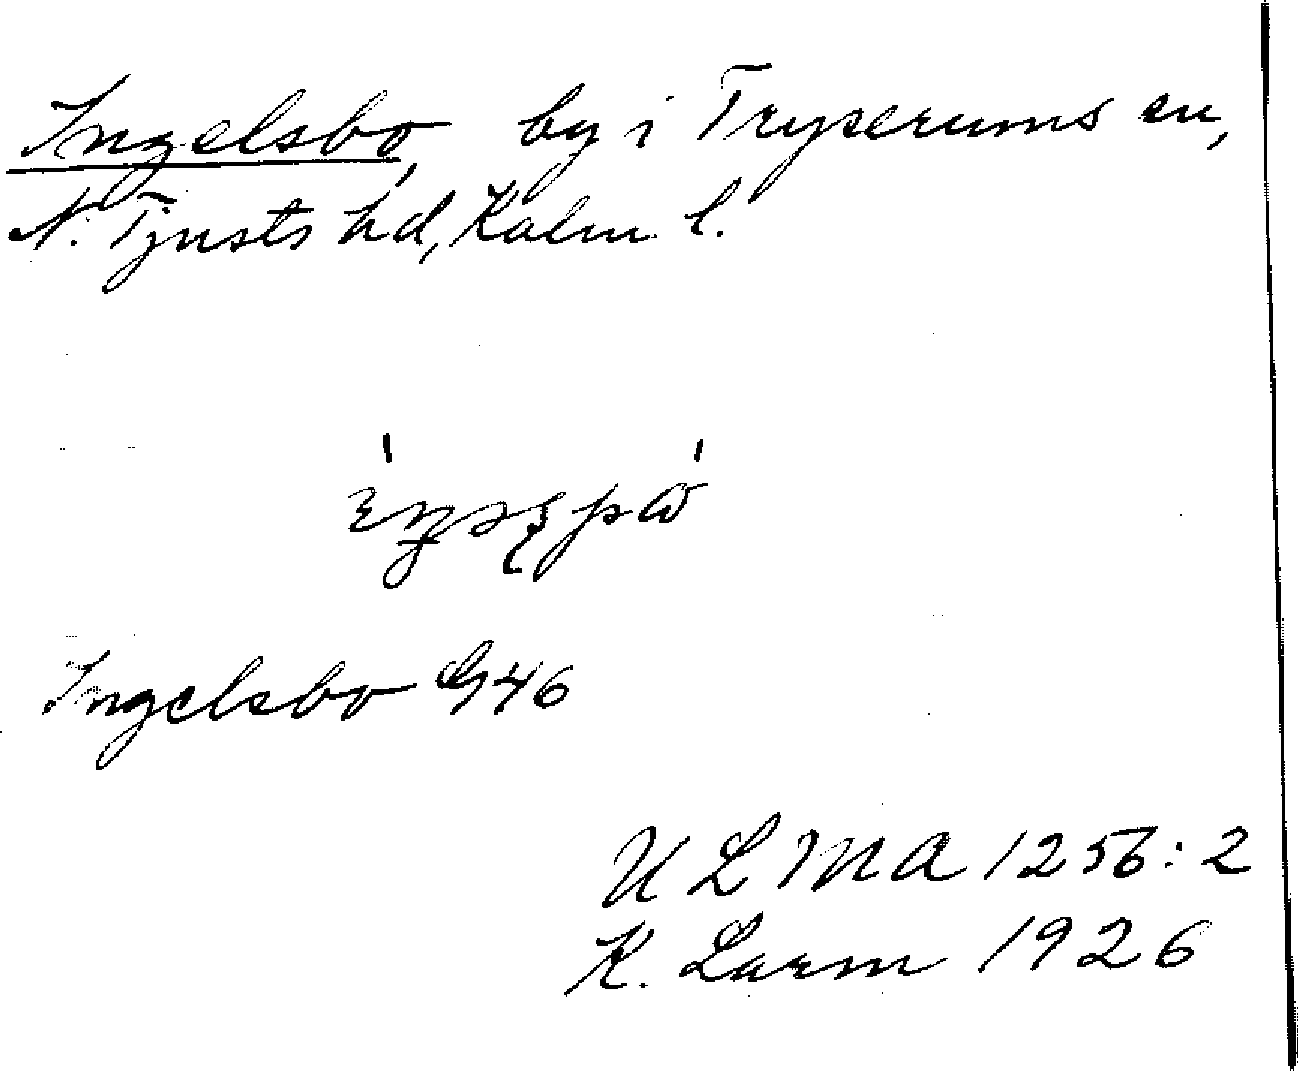 Ingelsbo, by i Tryserums sn,
N. Tjusts hd, Kalm. l.
Ingelsbo G46
ULMA 1256:2
K. Larm 1926